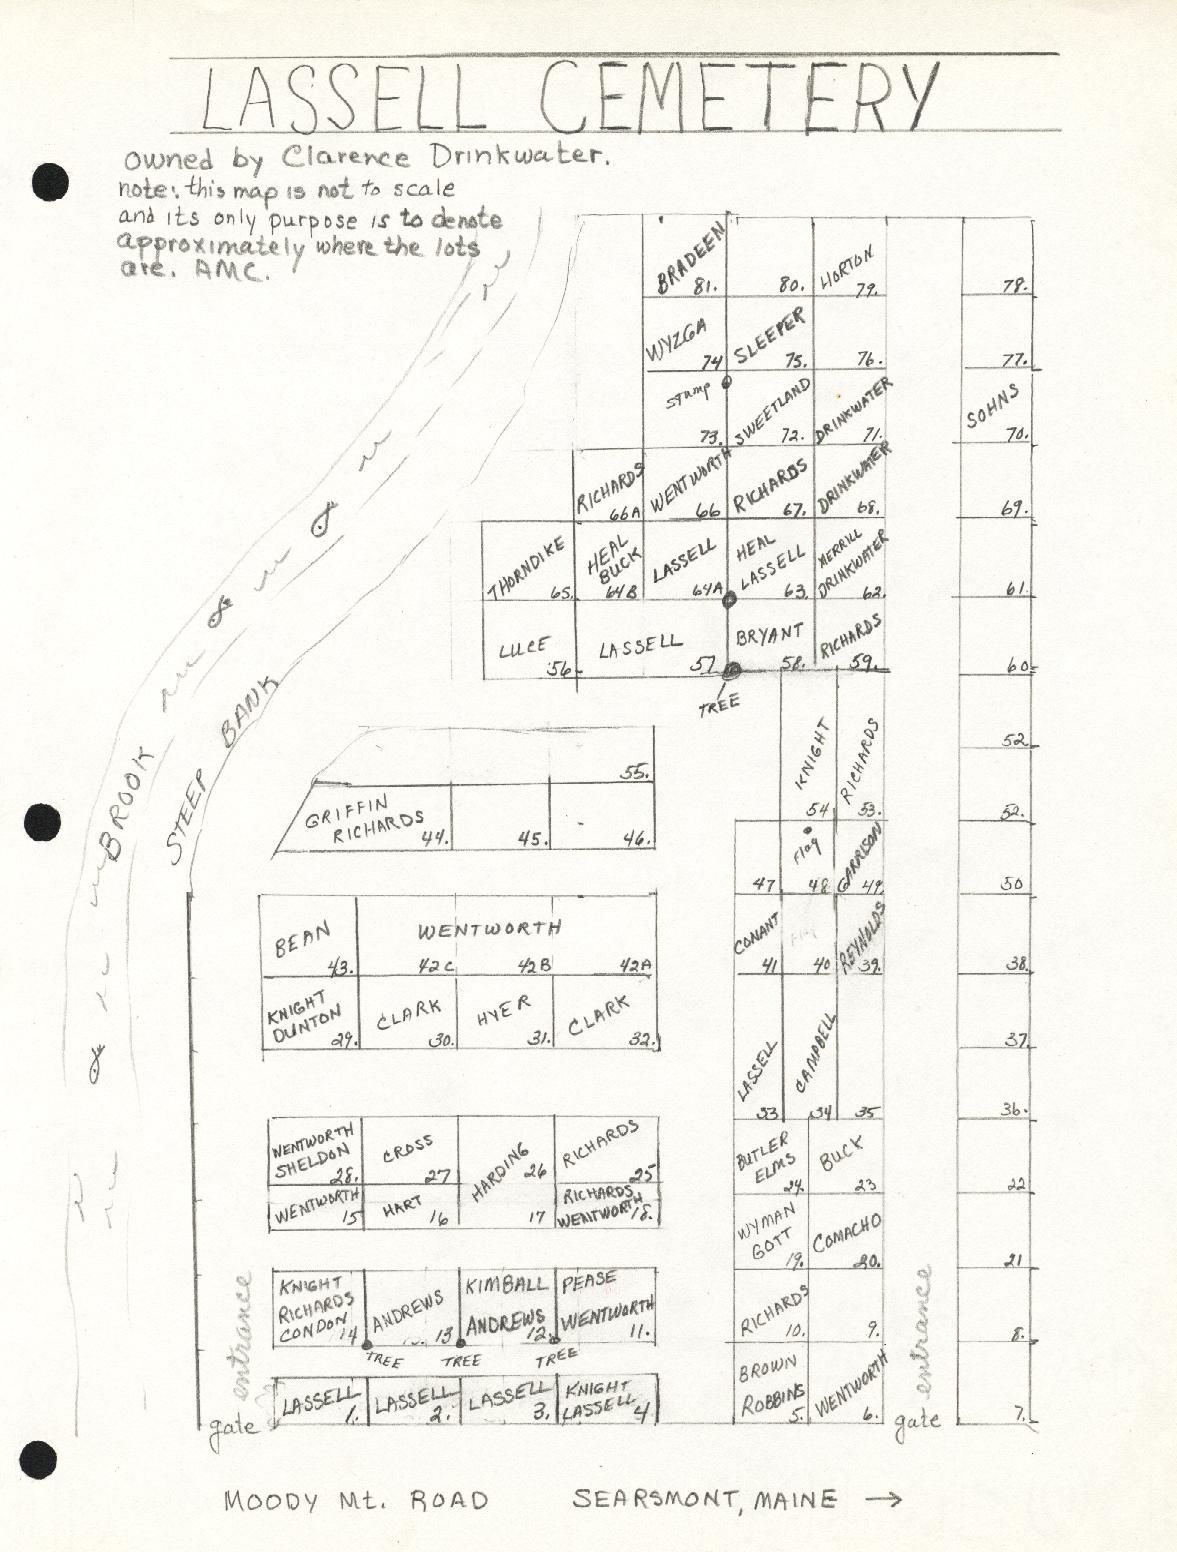 LASSELL CEMETERY
owned by Clarence Drinkwater.
note: this map is not to scale
and its only purpose is to denote
approximately where the lots
are. AMC.
BRADEEN 81.
80.
HORTON 79.
78.
WYZGA 74
SLEEPER 75.
76.
77.
Stump 73.
SWEETLAND 72.
DRINKWATER 71.
SOHNS 70.
RICHARDS 66A
WENTWORTH 66
RICHARDS 67.
DRINKWATER 68.
69.
THORNDIKE 65.
HEAL BUCK 64B
LASSELL 64A
HEAL LASSELL 63.
MERRILL DRINKWATER 62.
61.
LUCE 56
LASSELL 57
BRYANT 58.
RICHARDS 59.
60.
TREE
BROOK
STEEP BANK
55.
KNIGHT 54
RICHARDS 53.
52.
52.
GRIFFIN RICHARDS 44.
45.
46.
47
Flag 48
GARRISON 49.
50
BEAN 43.
WENTWORTH
42C
42B
42A
CONANT 41
Flag 40
REYNOLDS 39.
38.
KNIGHT DUNTON 29.
CLARK 30.
HYER 31.
CLARK 32.
LASSELL 33
CAMPBELL 34
35
37.
36.
WENTWORTH SHELDON 28.
CROSS 27
HARDING 26
RICHARDS 25
BUTLER ELMS 24.
BUCK 23
22
WENTWORTH 15
HART 16
17
RICHARDS WENTWORTH 18.
WYMAN GOTT 19.
COMACHO 20.
21
KNIGHT RICHARDS CONDON 14
ANDREWS 13
KIMBALL ANDREWS 12.
PEASE WENTWORTH 11.
RICHARDS 10.
9.
8.
TREE
TREE
TREE
entrance
entrance
LASSELL 1.
LASSELL 2.
LASSELL 3.
KNIGHT LASSELL 4
BROWN ROBBINS 5.
WENTWORTH 6.
7.
gate
gate
MOODY Mt. ROAD
SEARSMONT, MAINE →